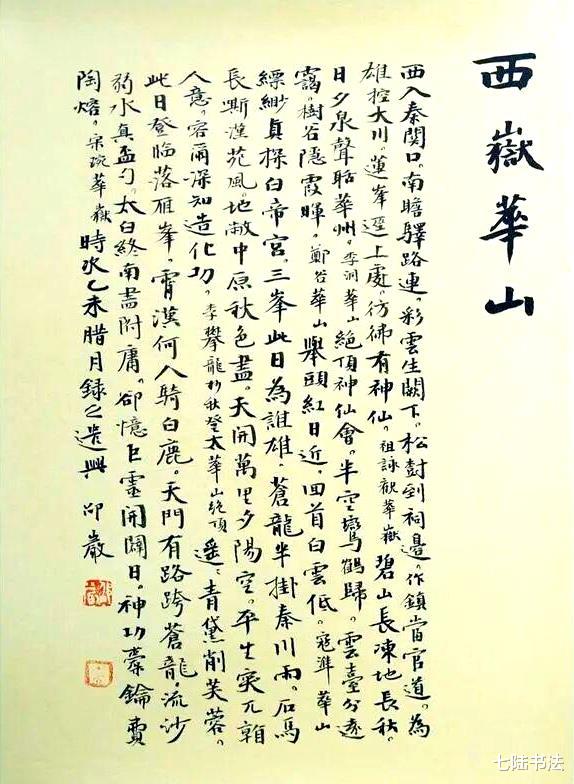 西嶽華山
西入秦関口。南瞻驛路連。彩雲生闕下。松樹到祠邊。作鎮當官道。為
雄控大川。蓮峯逕上處。彷彿有神仙。祖詠観華嶽 碧山長凍地長秋。
日夕泉聲聒華州。李洞華山 絶頂神仙會。半空鸞鶴歸。雲臺分遠
靄。樹谷隱霞暉。鄭谷華山 舉頭紅日近。回首白雲低。寇準華山
縹緲真探白帝宮。三峯此日為誰雄。蒼龍半掛秦川雨。石馬
長嘶漢苑風。地敞中原秋色盡。天開萬里夕陽空。平生突兀
人意。容爾深知造化功。李攀龍杪秋登太華山絶頂 遥遥青黛削芙蓉。
此日登臨落雁峯。霄漢何人騎白鹿。天門有路跨蒼龍。流沙
弱水真盃勺。太白終南盡附庸。卻憶巨靈開闢日。神功橐鑰費
陶熔。宋琬華嶽 時次乙未腊月録之遣興 邱巖
七陆书法